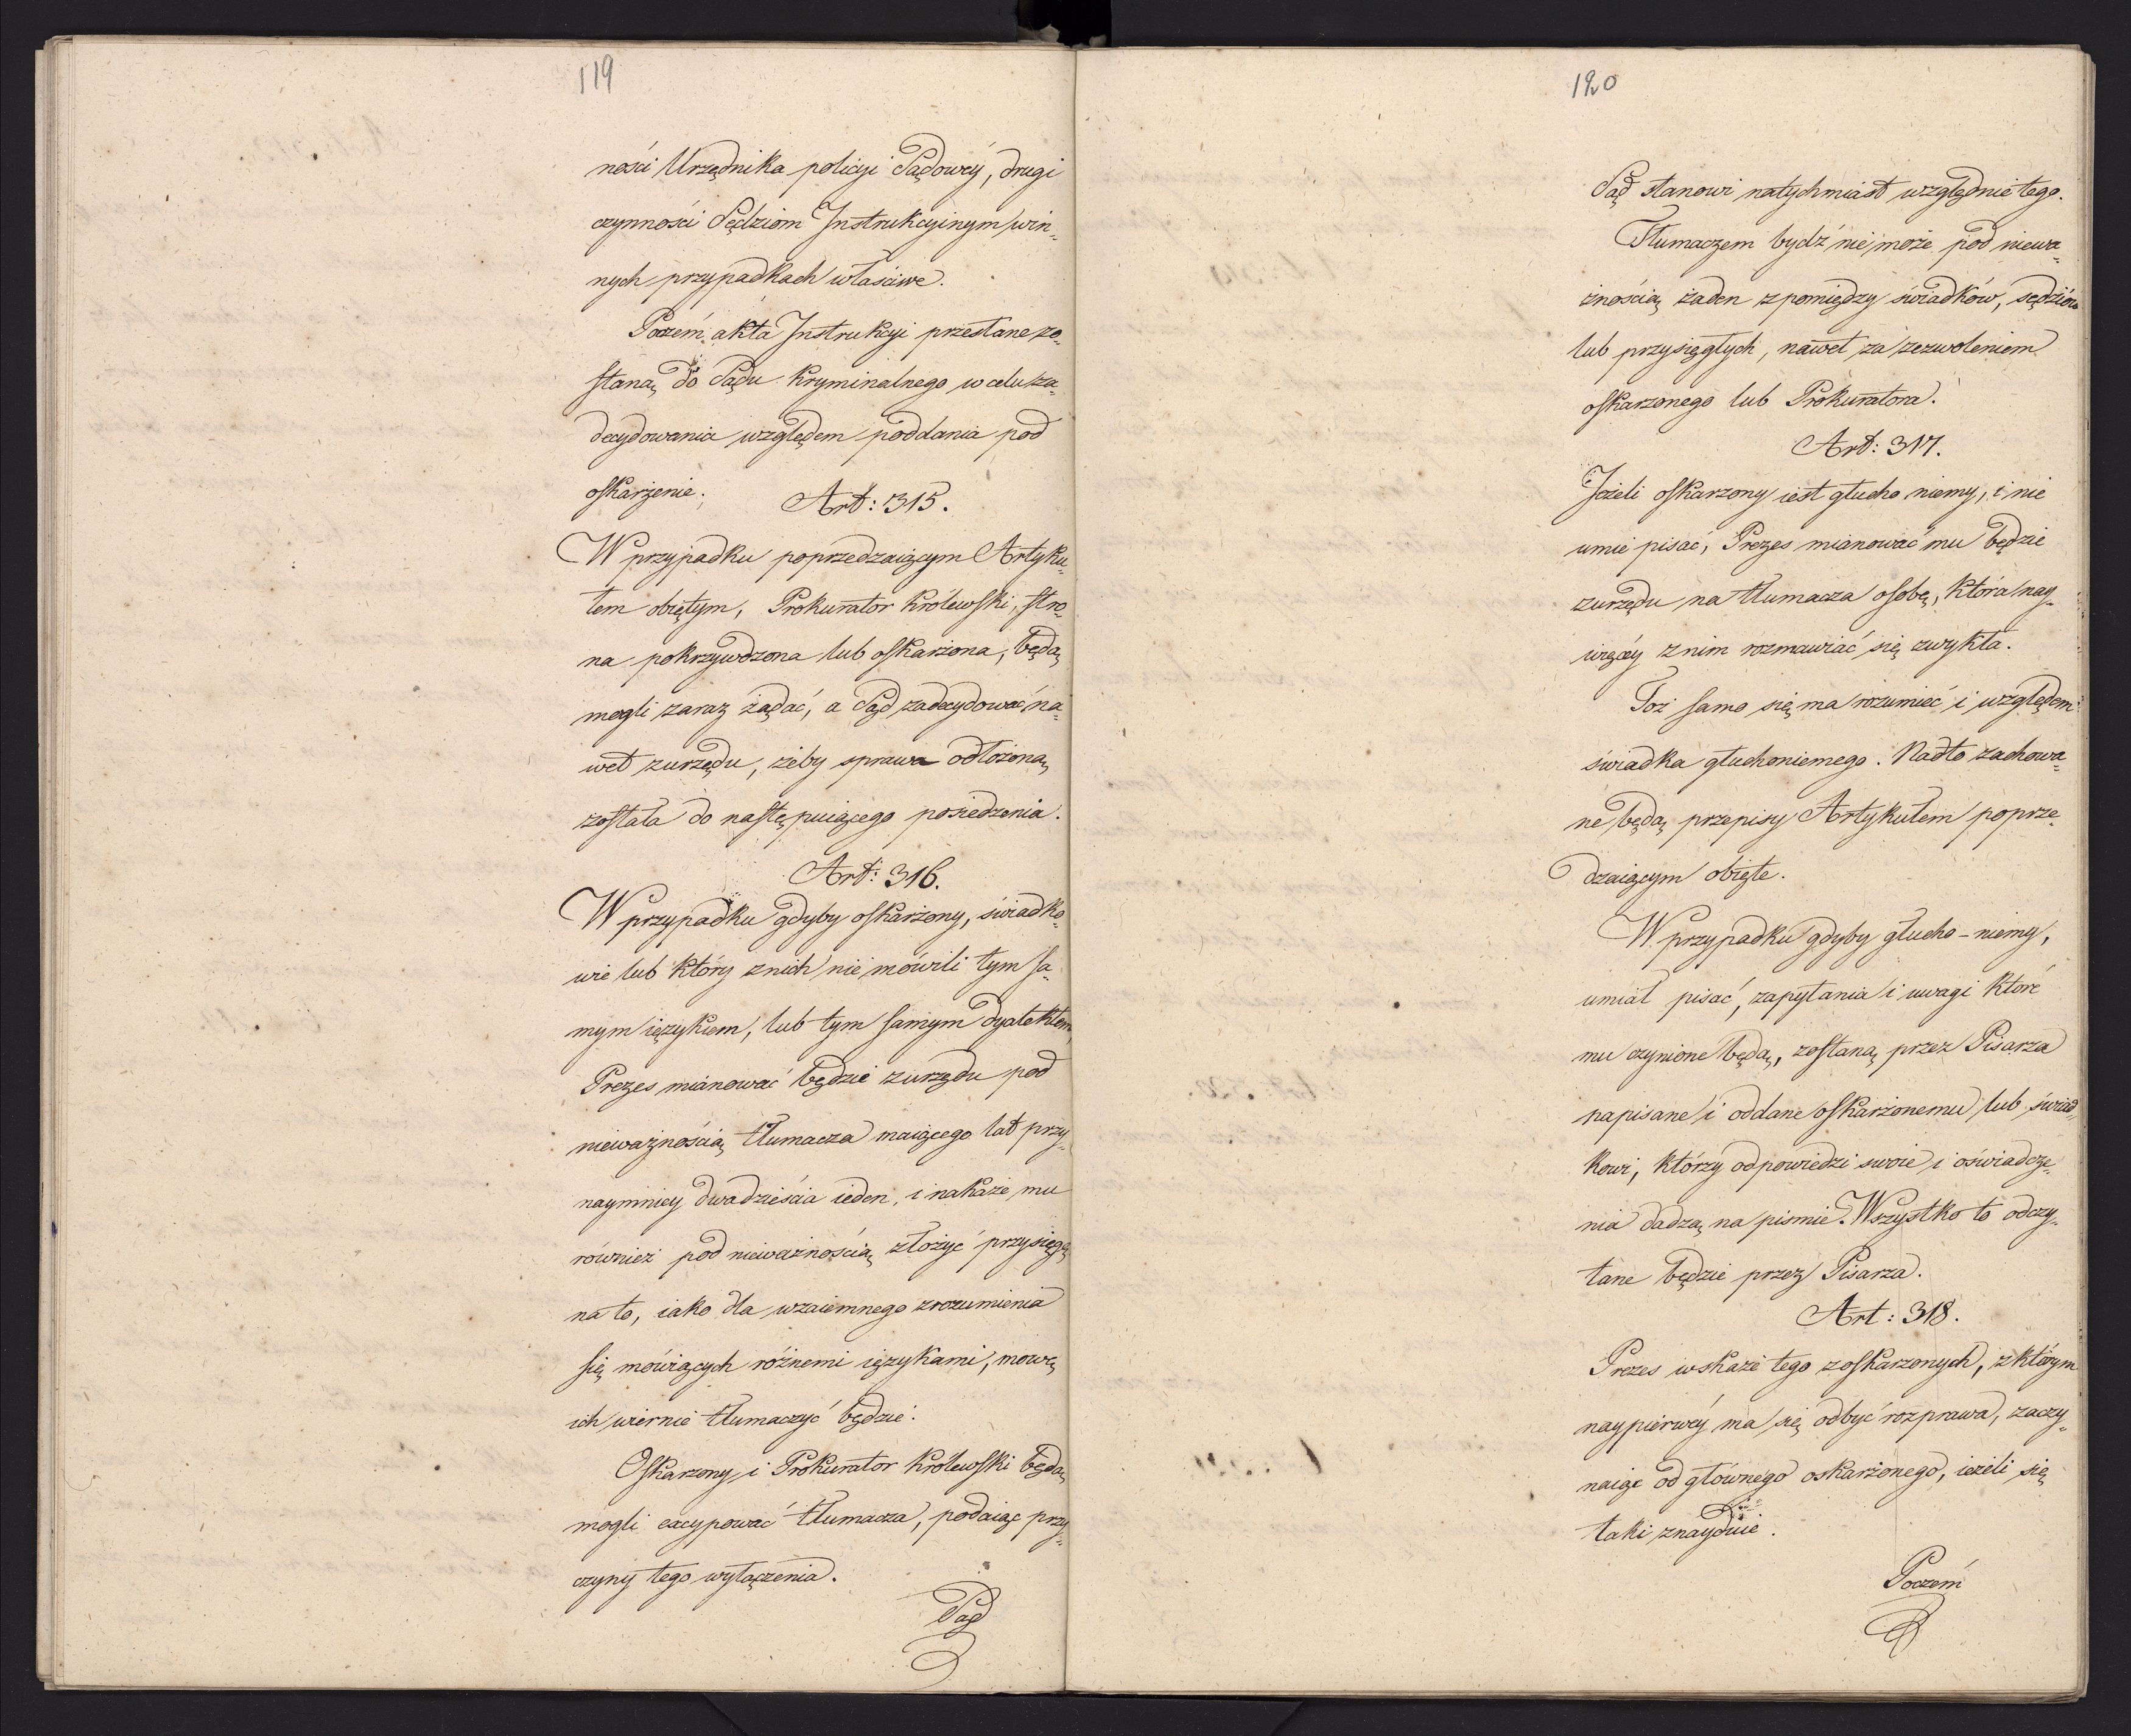 119
ności Urzędnika policyi Sądowéy, drugi
czynności Sędziom Instrukcyinym win„
nych przypadkach właściwe.
Poczém akta Instrukcyi przesłane zo„
staną do Sądu Kryminalnego w celu za„
decydowania względem poddania pod
oskarżenie.
Art: 315.
W przypadku poprzedzaiącym Artyku„
łem obiętym, Prokurator Królewski, stro„
na pokrzywdzona lub oskarżona, będą
mogli zaraz żądać, a Sąd zadecydować na„
wet z urzędu, żeby sprawa odłożoną
została do następuiącego posiedzenia.
Art: 316.
W przypadku gdyby oskarżony, świadko„
wie lub który z nich nie mówili tym sa„
mym ięzykiem, lub tym samym dyalektem,
Prezes mianować będzie z urzędu pod
nieważnością tłumacza maiącego lat przy„
naymniey dwadzieścia ieden, i nakaże mu
również pod nieważnością złożyć przysięgę
na to, iako dla wzaiemnego zrozumienia
się mówiących różnemi ięzykami, mowę
ich wiernie tłumaczyć będzie.
Oskarzony i Prokurator Królewski będą
mogli excypować tłumacza, podaiąc przy„
czyny tego wyłączenia.
Sąd
120
Sąd stanowi natychmiast względnie tego.
Tłumaczem bydź nie może pod niewa„
żnością żaden z pomiędzy świadków, sędziów
lub przysięgłych, nawet za zezwoleniem
oskarzonego lub Prokuratora.
Art: 317.
Jeżeli oskarzony iest głucho niemy, i nie
umie pisać, Prezes mianować mu będzie
z urzędu na tłumacza osobę, która nay„
więcéy z nim rozmawiać się zwykła.
Toż samo się ma rozumieć i względem
świadka głuchoniemego. Nadto zachowa„
ne będą przepisy Artykułem poprze„
dzaiącym obięte.
W przypadku gdyby głucho-niemy,
umiał pisać, zapytania i uwagi które
mu czynione będą, zostaną przez Pisarza
napisane i oddane oskarżonemu lub świad„
kowi, którzy odpowiedzi swoie i oświadcze„
nia dadzą na pismie. Wszystko to odczy„
tane będzie przez Pisarza.
Art: 318.
Prezes wskaże tego z oskarzonych, z którym
naypiérwéy ma się odbyć rozprawa, zaczy„
naiąc od głównego oskarżonego, ieżeli się
taki znayduie.
Poczém